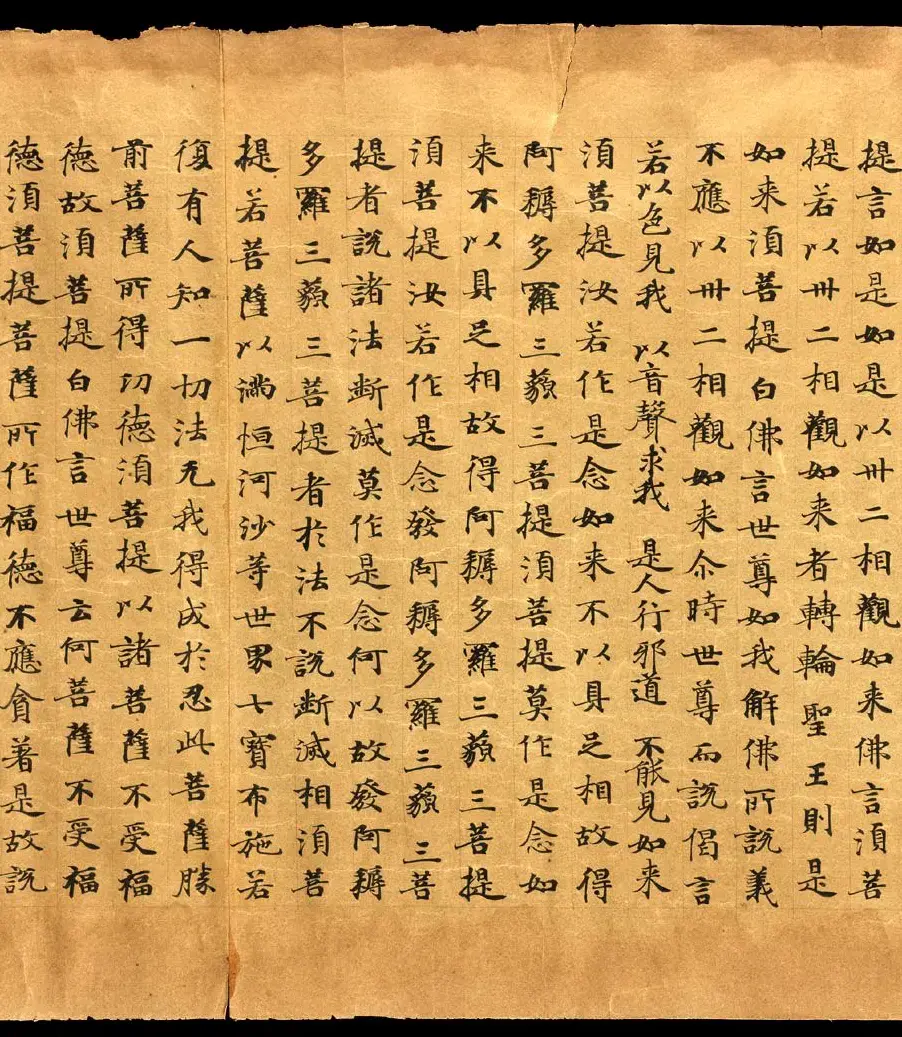 提言如是如是以卅二相觀如来佛言湏菩
提若以卅二相觀如来者轉輪聖王則是
如来湏菩提白佛言世尊如我解佛所說義
不應以卅二相觀如来尒時世尊而說偈言
若以色見我 以音聲求我 是人行邪道 不能見如来
湏菩提汝若作是念如来不以具足相故得
阿耨多羅三藐三菩提湏菩提莫作是念如
来不以具足相故得阿耨多羅三藐三菩提
湏菩提汝若作是念發阿耨多羅三藐三菩
提者說諸法断滅莫作是念何以故發阿耨
多羅三藐三菩提者於法不說断滅相湏菩
提若菩薩以滿恒河沙等世界七寶布施若
復有人知一切法无我得成於忍此菩薩勝
前菩薩所得功德湏菩提以諸菩薩不受福
德故湏菩提白佛言世尊云何菩薩不受福
德湏菩提菩薩所作福德不應貪著是故說